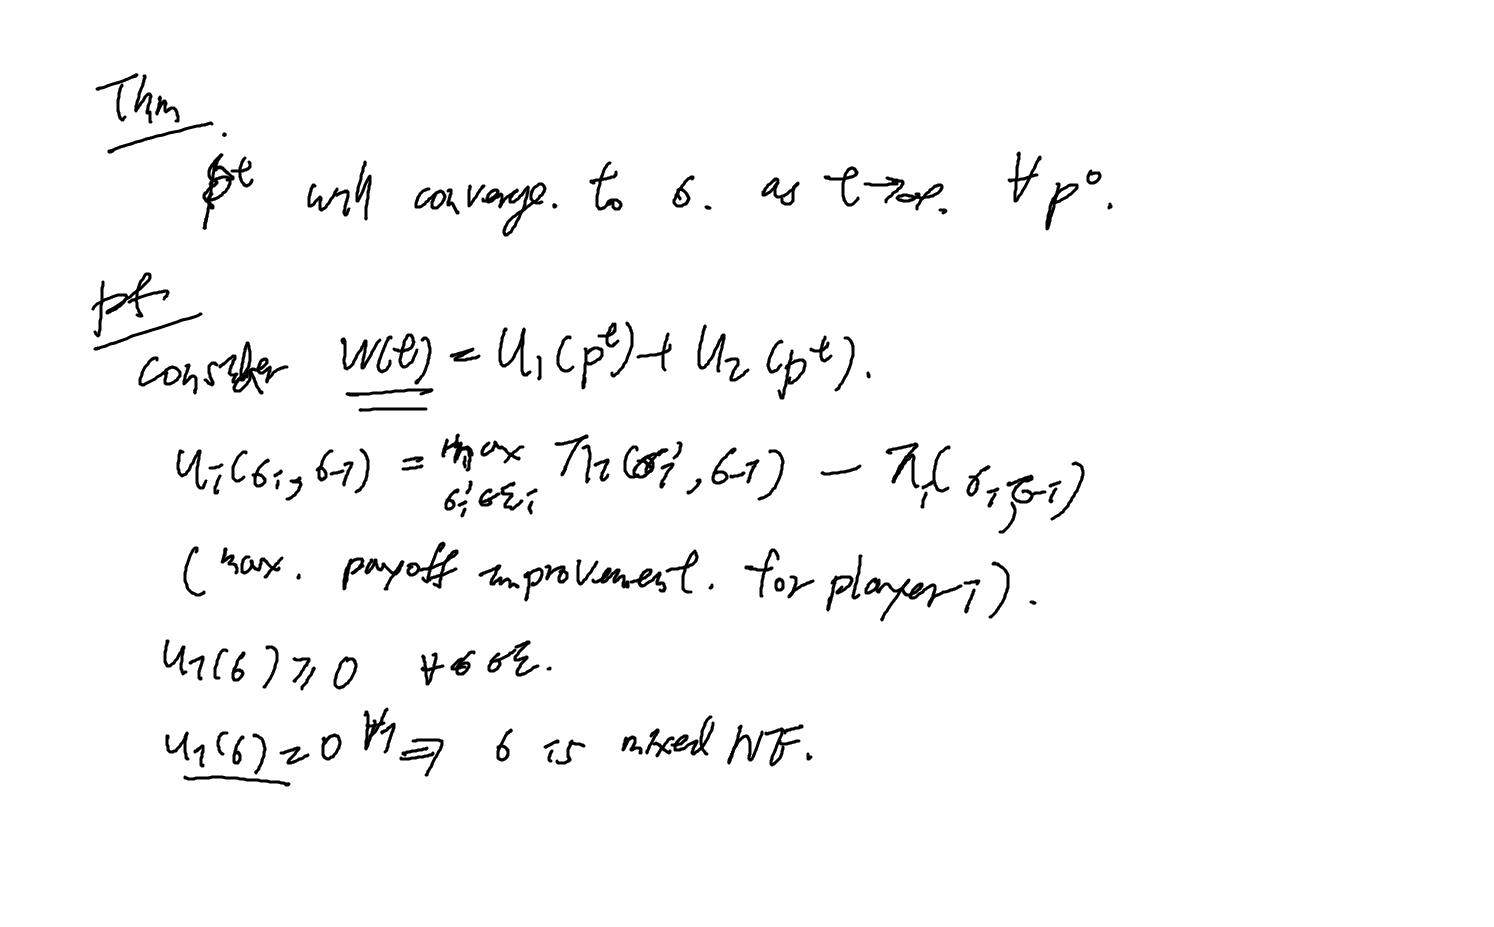 Thm.
p^t will converge. to σ. as t→∞. ∀ p^0.
pf
consider W(t) = U_1(p^t) + U_2(p^t).
U_i(σ_i, σ_-i) = max_{σ_i' ∈ Σ_i} π_i(σ_i', σ_-i) − π_i(σ_i, σ_-i)
(max. payoff improvement. for player i).
U_i(σ) ≥ 0 ∀ σ ∈ Σ.
U_i(σ) = 0 ∀i ⇒ σ is mixed NE.